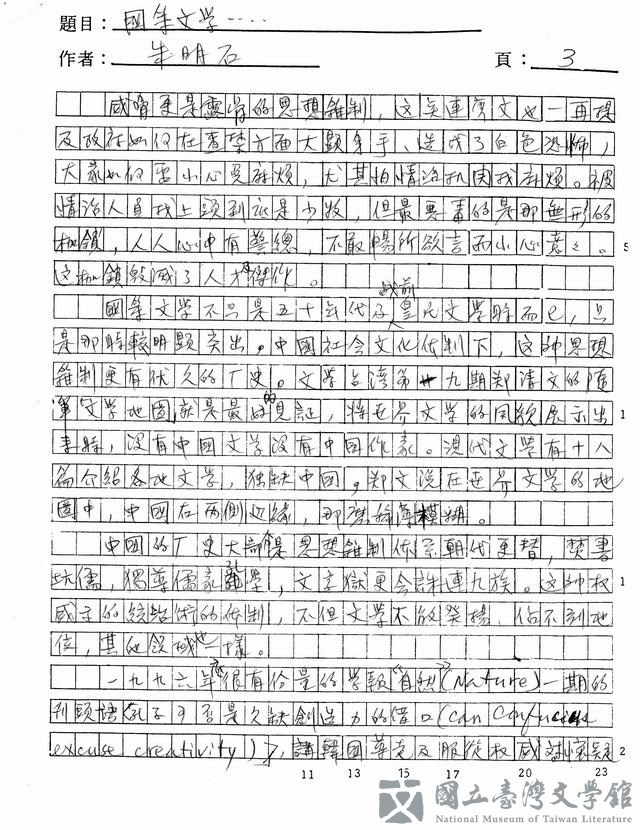 題目：國軍文学‥‥
作者：朱明石 頁：3
威脅更是靈育的思想鉗制，这矣連寫文也一再提
及政府如何在查禁方面大顯身手、造成了白色恐怖，
大家如何要小心免麻煩，尤其怕情治机関找麻煩。被
情治人員找上頭到底是少數，但最要害的是那無形的
枷鎖，人人心中有警總，不敢暢所欲言而小心意之。
这枷鎖毀滅了人才傑作。
國軍文学不只是五十年代及戰前皇民文学時而已，只
是那時較明顯突出。中國社会文化体制下，这种思想
鉗制更有伏久的厂史。文学台湾第十九期郑清文的
文学地圖就是最好的見証，將世界文学的風貌展示出
來時，沒有中國文学沒有中國作家。現代文学有十八
篇介紹各地文学，独缺中國。郑文說在世界文学的地
圖中，中國在两側边緣，那樣稀薄模糊。
中國的厂史大部是思想鉗制体系朝代更替，焚書
坑儒，獨尊儒家學，文字獄更会誅連九族。这种权
威式的統治術的体制，不但文学不能發揚，佔不到地
位，其他領域也一樣。
一九九六年底很有份量的学報"自然"(Nature)一期的
刊頭語(孔子可否是欠缺創造力的借口(can Confucius
excuse creativity)?，講韓國尊克及服從权威对懷疑
5
1
1
2
11 13 15 17 20 23
國立臺灣文學館
National Museum of Taiwan Literature